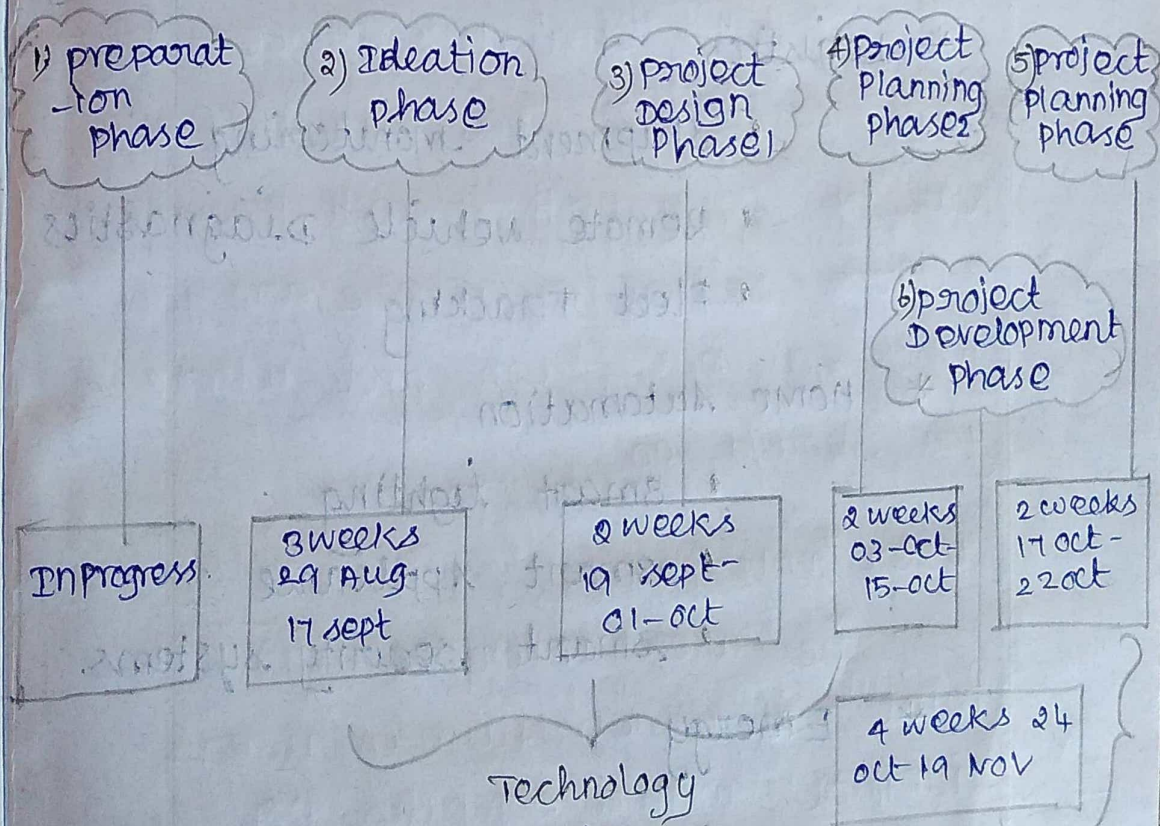 1) preparat
-ion
phase
2) Ideation
phase
3) project
Design
Phase1
4) project
Planning
phase2
5) project
planning
phase
6) project
Development
phase
Inprogress.
3 weeks
29 Aug-
17 sept
2 weeks
19 sept-
01-oct
2 weeks
03-oct-
15-oct
2 weeks
17 oct-
22 oct
4 weeks 24
oct 19 NOV
Technology